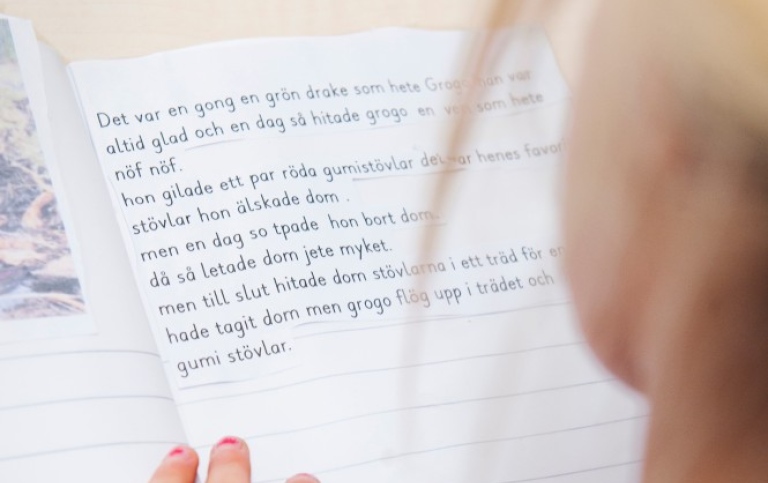 Det var en gong en grön drake som hete Grogo han var
altid glad och en dag så hitade grogo en ven som hete
nöf nöf.
hon gilade ett par röda gumistövlar det var henes favor
stövlar hon älskade dom .
men en dag so tpade hon bort dom.
då så letade dom jete myket.
men till slut hitade dom stövlarna i ett träd för en
hade tagit dom men grogo flög upp i trädet och
gumi stövlar.